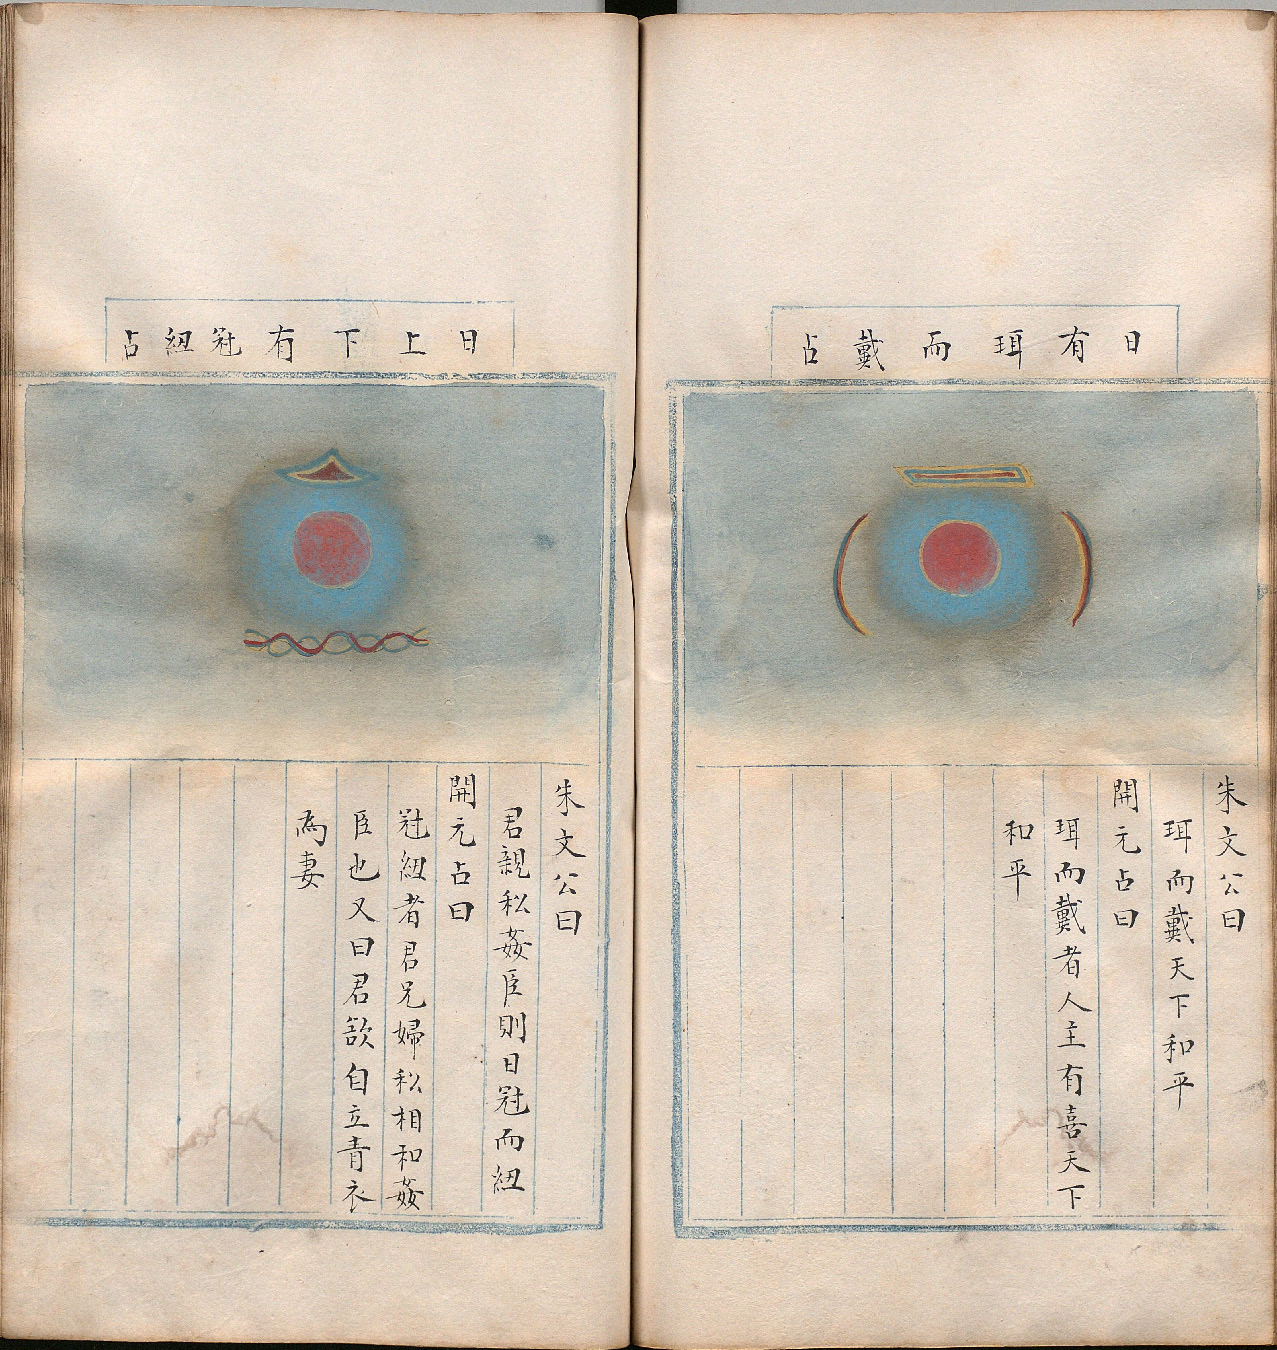 日有珥而戴占
朱文公曰
珥而戴天下和平
開元占曰
珥而戴者人主有喜天下
和平
日上下有冠紐占
朱文公曰
君親私姦臣則日冠而紐
開元占曰
冠紐者君兄婦私相和姦
臣也又曰君欲自立青衣
為妻